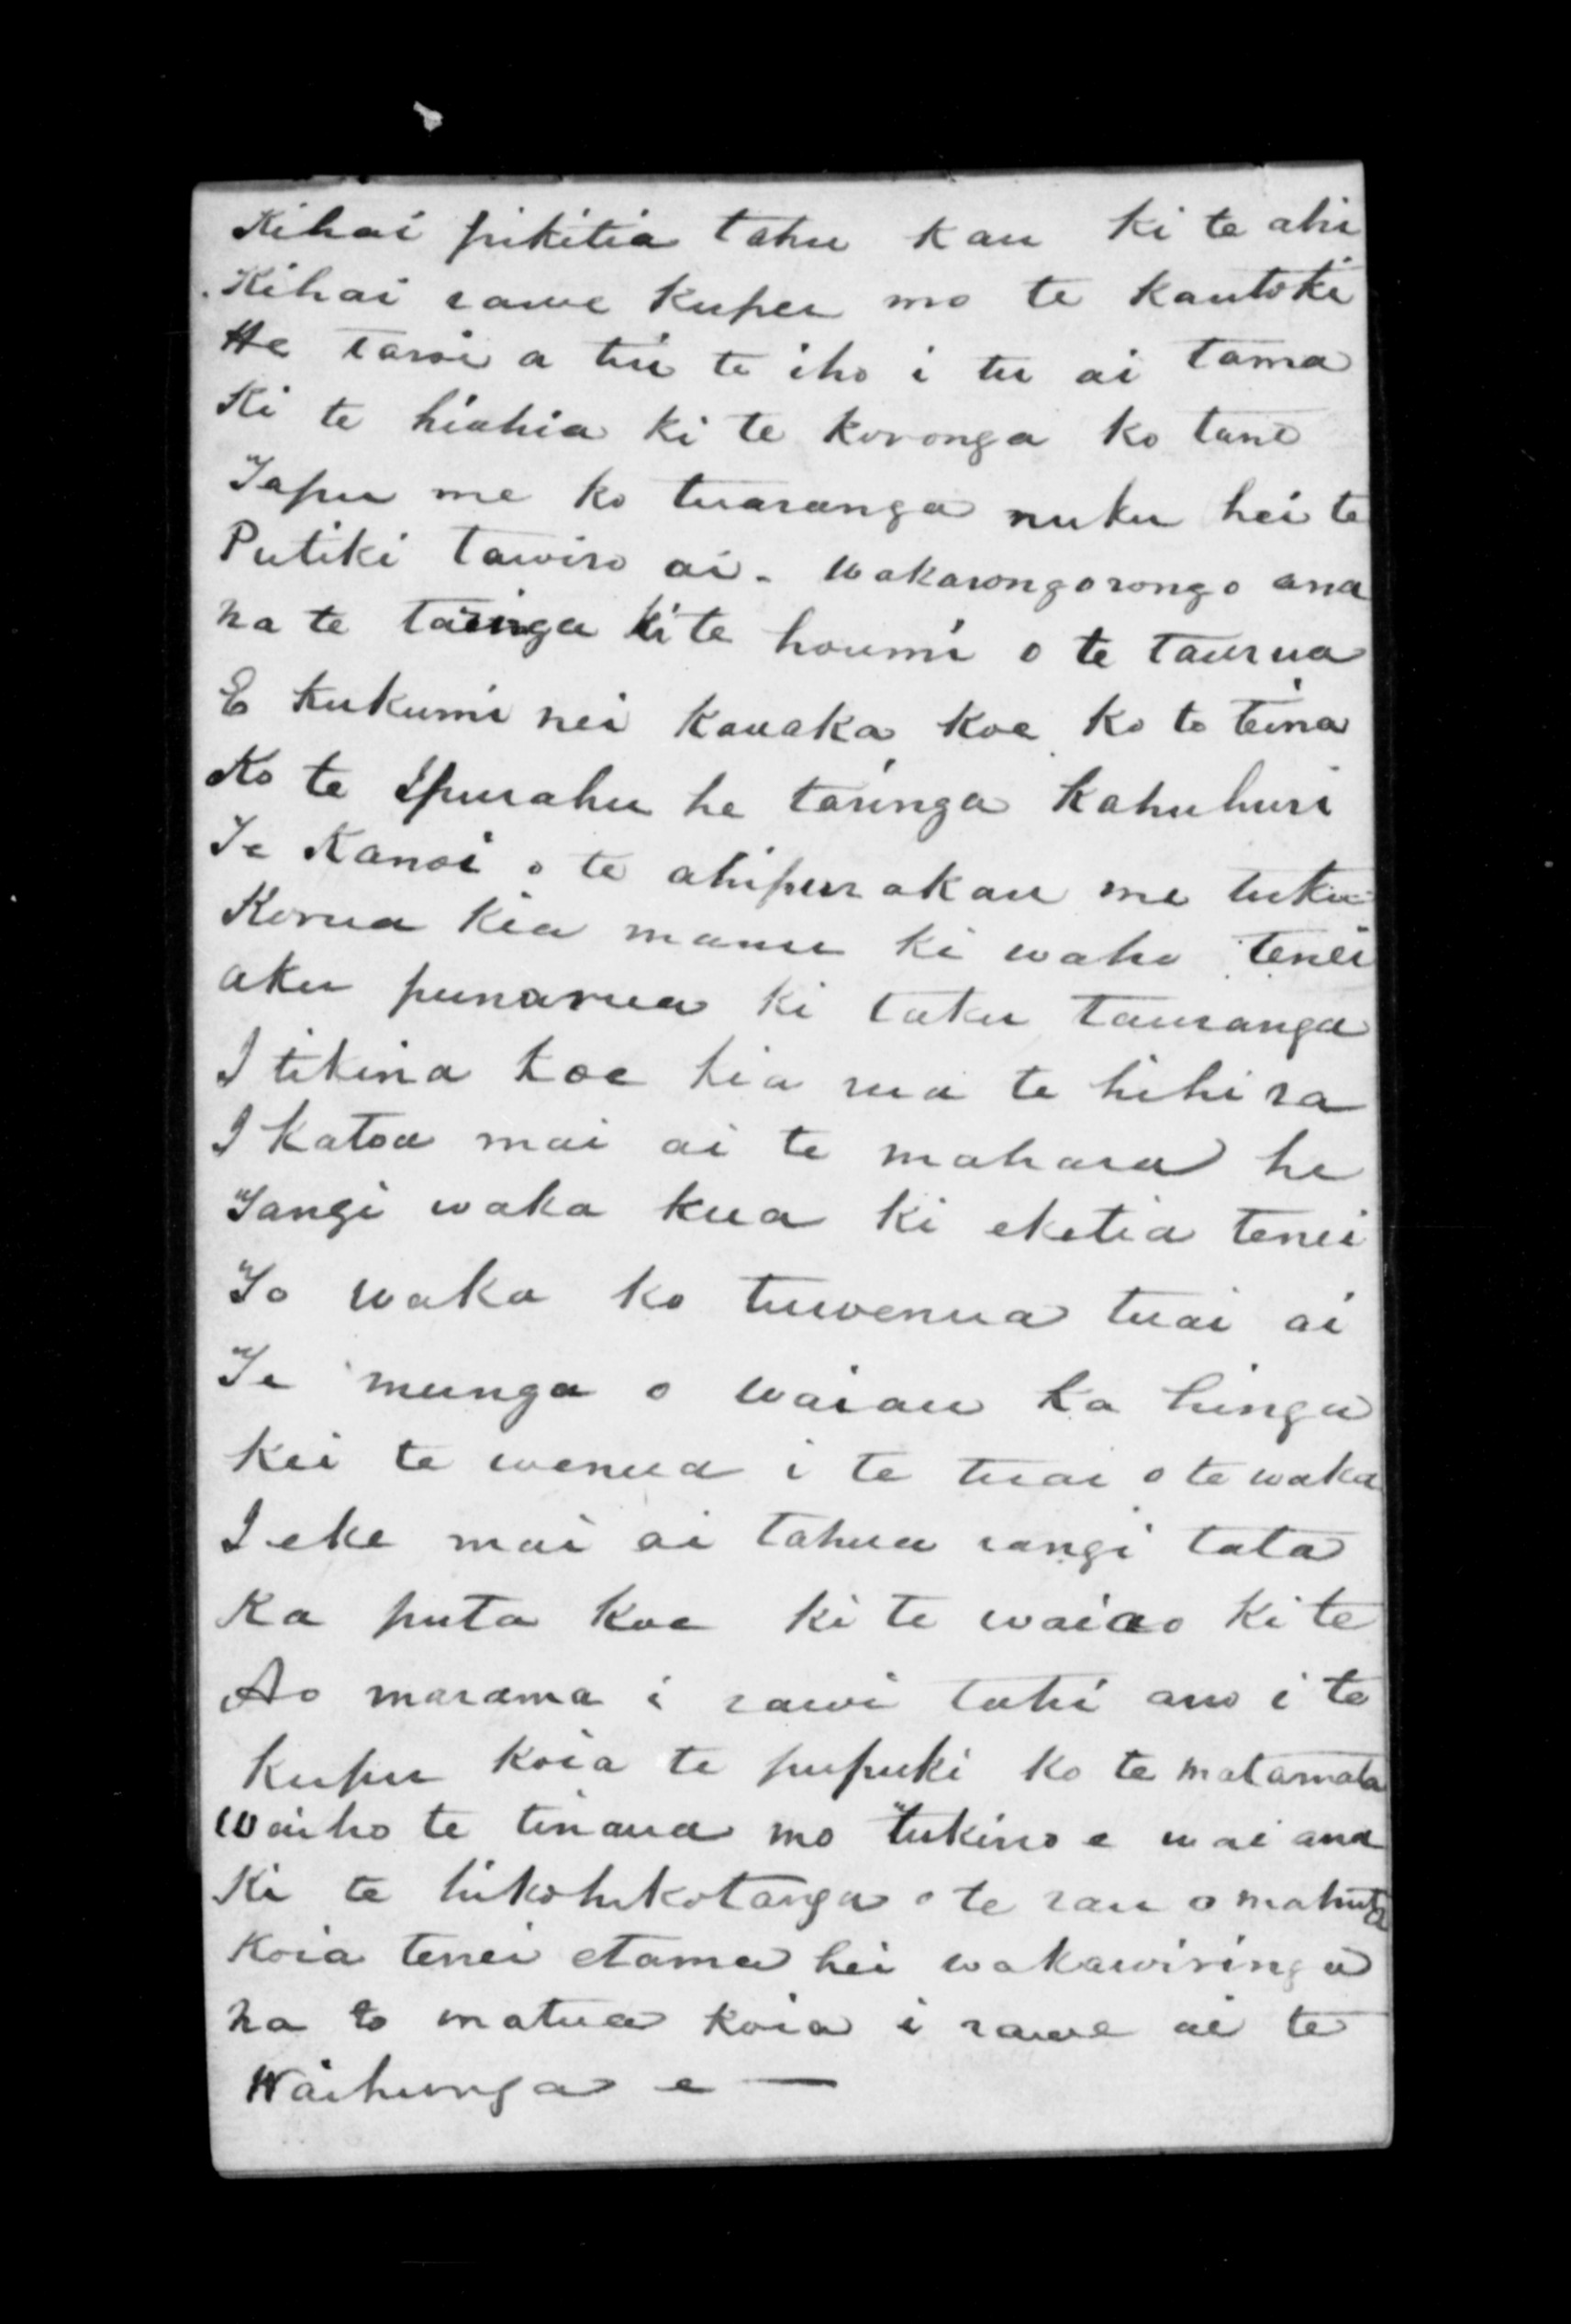 Kihai pikitia tahu kau ki te ahi
Kihai rawe kupu mo te kautoki
He taroi a tui te iho i tu ai tama
Ki te hiahia ki te koronga ko tane
Tapu me ko tuaranga nuku hei te
Putiki tawiro ai. wakarongorongo ana
na te taringa ki te houmi o te taurua
E kukumi nei kauaka koe ko to teina
Ko te Ipurahu he taringa kahuhuri
Te Kanoi o te ahipurakau me tuku
Korua kia manu ki waho tenei
aku punarua ki taku tauranga
I tikina koe kia rua te hihi ra
I katoa mai ai te mahara he
Tangi waka kua ki eketia tenei
To waka ko tuwenua tuai ai
Te munga o waiau ka hinga
kei te wenua i te tuai o te waka
I eke mai ai tahua rangi tata
Ka puta koe ki te waiao ki te
Ao marama i rawi tahi ano i te
kupu koia te pupuki ko te matamata
Waiho te tinana mo tukino e wai ana
Ki te hikohikotanga o te rau o mahuta
Koia tenei etama hei wakawiringa
na to matua koia i rawe ai te
Waihunga e —